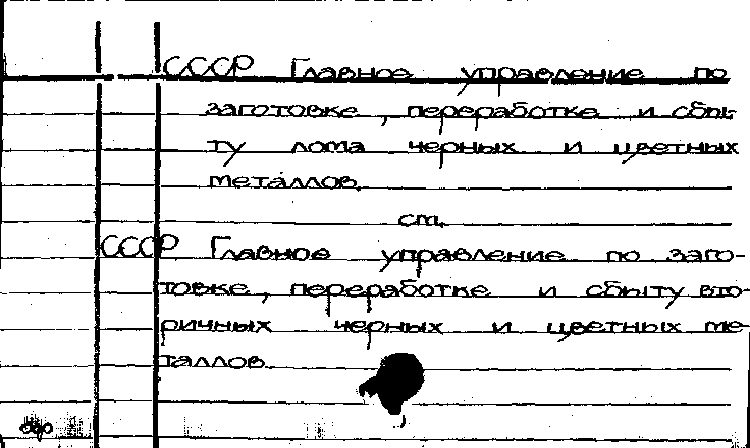 СССР Главное управление по
заготовке, переработке и сбы-
ту лома черных и цветных
металлов.
см.
СССР Главное управление по заго-
товке, переработке и сбыту вто-
ричных черных и цветных ме-
таллов.